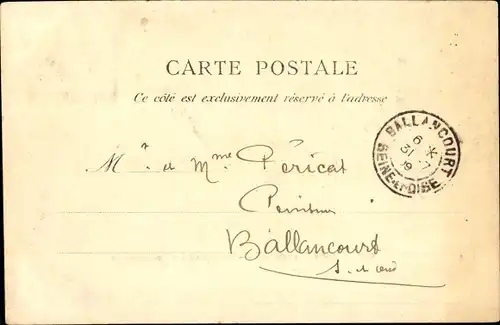 CARTE POSTALE
Ce côté est exclusivement réservé à l'adresse
BALLANCOURT
SEINE-ET-OISE
Mr et Mme Péricat
Peintre
Ballancourt
S. et Oise